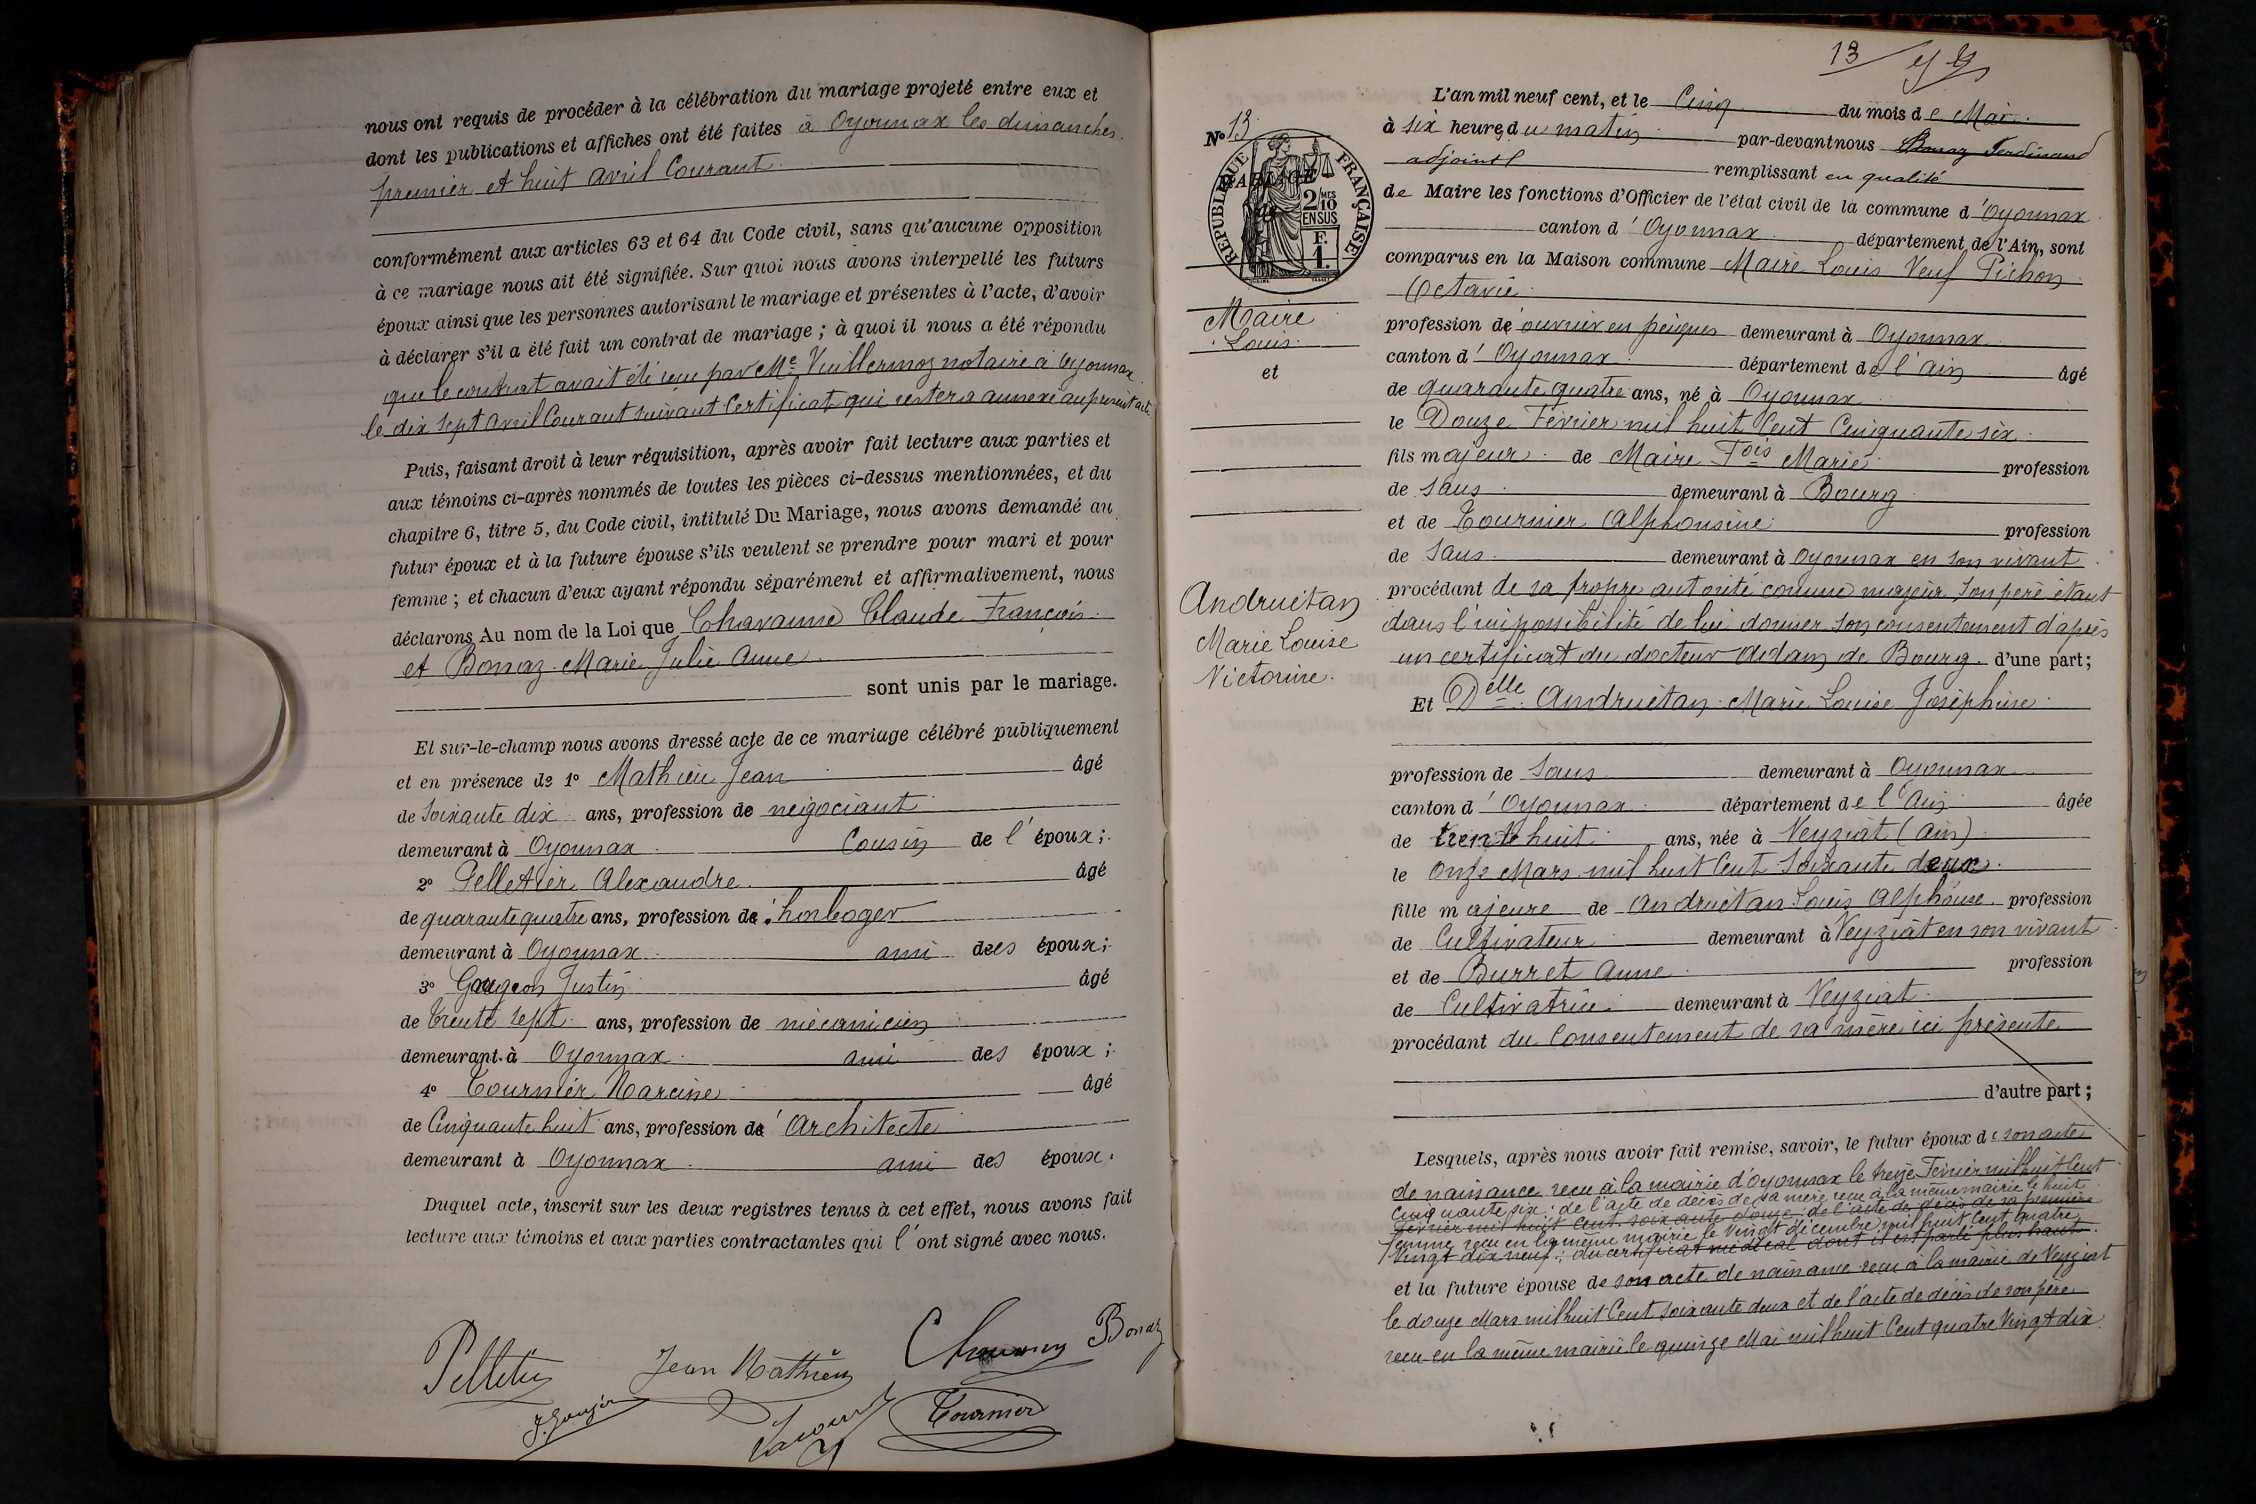 nous ont requis de procéder à la célébration du mariage projeté entre eux et
dont les publications et affiches ont été faites à Oyonnax les dimanches
premier et huit avril Courant
conformément aux articles 63 et 64 du Code civil, sans qu'aucune opposition
à ce mariage nous ait été signifiée. Sur quoi nous avons interpellé les futurs
époux ainsi que les personnes autorisant le mariage et présentes à l'acte, d'avoir
à déclarer s'il a été fait un contrat de mariage ; à quoi il nous a été répondu
que le contrat avait été reçu par Me Vuillermoz notaire à Oyonnax
le dix sept avril Courant suivant Certificat qui restera annexé au présent acte
Puis, faisant droit à leur réquisition, après avoir fait lecture aux parties et
aux témoins ci-après nommés de toutes les pièces ci-dessus mentionnées, et du
chapitre 6, titre 5, du Code civil, intitulé Du Mariage, nous avons demandé au
futur époux et à la future épouse s'ils veulent se prendre pour mari et pour
femme ; et chacun d'eux ayant répondu séparément et affirmativement, nous
déclarons Au nom de la Loi que Chavanne Claude François
et Bonnaz Marie Julie Anne
sont unis par le mariage.
Et sur-le-champ nous avons dressé acte de ce mariage célébré publiquement
et en présence de 1° Mathieu Jean âgé
de Soixante dix ans, profession de négociant
demeurant à Oyonnax Cousin de l'époux ;
2° Pelletier Alexandre âgé
de quarante quatre ans, profession de horloger
demeurant à Oyonnax ami des époux ;
3° Goujon Justin âgé
de trente sept ans, profession de mécanicien
demeurant à Oyonnax ami des époux ;
4° Tournier Narcisse âgé
de Cinquante huit ans, profession d'Architecte
demeurant à Oyonnax ami des époux.
Duquel acte, inscrit sur les deux registres tenus à cet effet, nous avons fait
lecture aux témoins et aux parties contractantes qui l'ont signé avec nous.
Pelletier Jean Mathieu Bonaz
J. Goujon Tournier
13
N° 13
MARIAGE
de
REPUBLIQUE FRANÇAISE
2/10 MES
EN SUS
F.
1.
Maire
Louis
et
Andruétan
Marie Louise
Victorine
L'an mil neuf cent, et le Cinq du mois de Mai
à six heures du matin par-devant nous Bonaz Ferdinand
adjoint remplissant en qualité
de Maire les fonctions d'Officier de l'état civil de la commune d'Oyonnax
canton d'Oyonnax département de l'Ain, sont
comparus en la Maison commune Maire Louis Veuf Pichon
Octavie
profession de ouvrier en peignes demeurant à Oyonnax
canton d'Oyonnax département de l'Ain âgé
de quarante quatre ans, né à Oyonnax
le Douze Février mil huit Cent Cinquante six
fils majeur de Maire Fois Marie profession
de sans demeurant à Bourg
et de Tournier Alphonsine profession
de sans demeurant à Oyonnax en son vivant
procédant de sa propre autorité comme majeur, son père étant
dans l'impossibilité de lui donner son consentement d'après
un certificat du docteur Adam de Bourg d'une part ;
Et Delle Andruétan Marie Louise Joséphine
profession de Sans demeurant à Oyonnax
canton d'Oyonnax département de l'Ain âgée
de trente huit ans, née à Veyziat (Ain)
le onze Mars mil huit Cent Soixante deux
fille majeure de Andruétan Louis Alphonse profession
de Cultivateur demeurant à Veyziat en son vivant
et de Burret Anne profession
de Cultivatrice demeurant à Veyziat
procédant du Consentement de sa mère ici présente
d'autre part ;
Lesquels, après nous avoir fait remise, savoir, le futur époux de son acte
de naissance reçu à la mairie d'Oyonnax le treize Février mil huit Cent
Cinquante six ; de l'acte de décès de sa mère reçu à la même mairie le huit
février mil huit Cent soixante douze ; de l'acte de décès de sa première
femme reçu en la même mairie le vingt décembre mil huit Cent quatre
vingt dix neuf ; du certificat médical dont il est parlé plus haut
et la future épouse de son acte de naissance reçu à la mairie de Veyziat
le douze Mars mil huit Cent soixante deux et de l'acte de décès de son père
reçu en la même mairie le quinze Mai mil huit Cent quatre Vingt dix